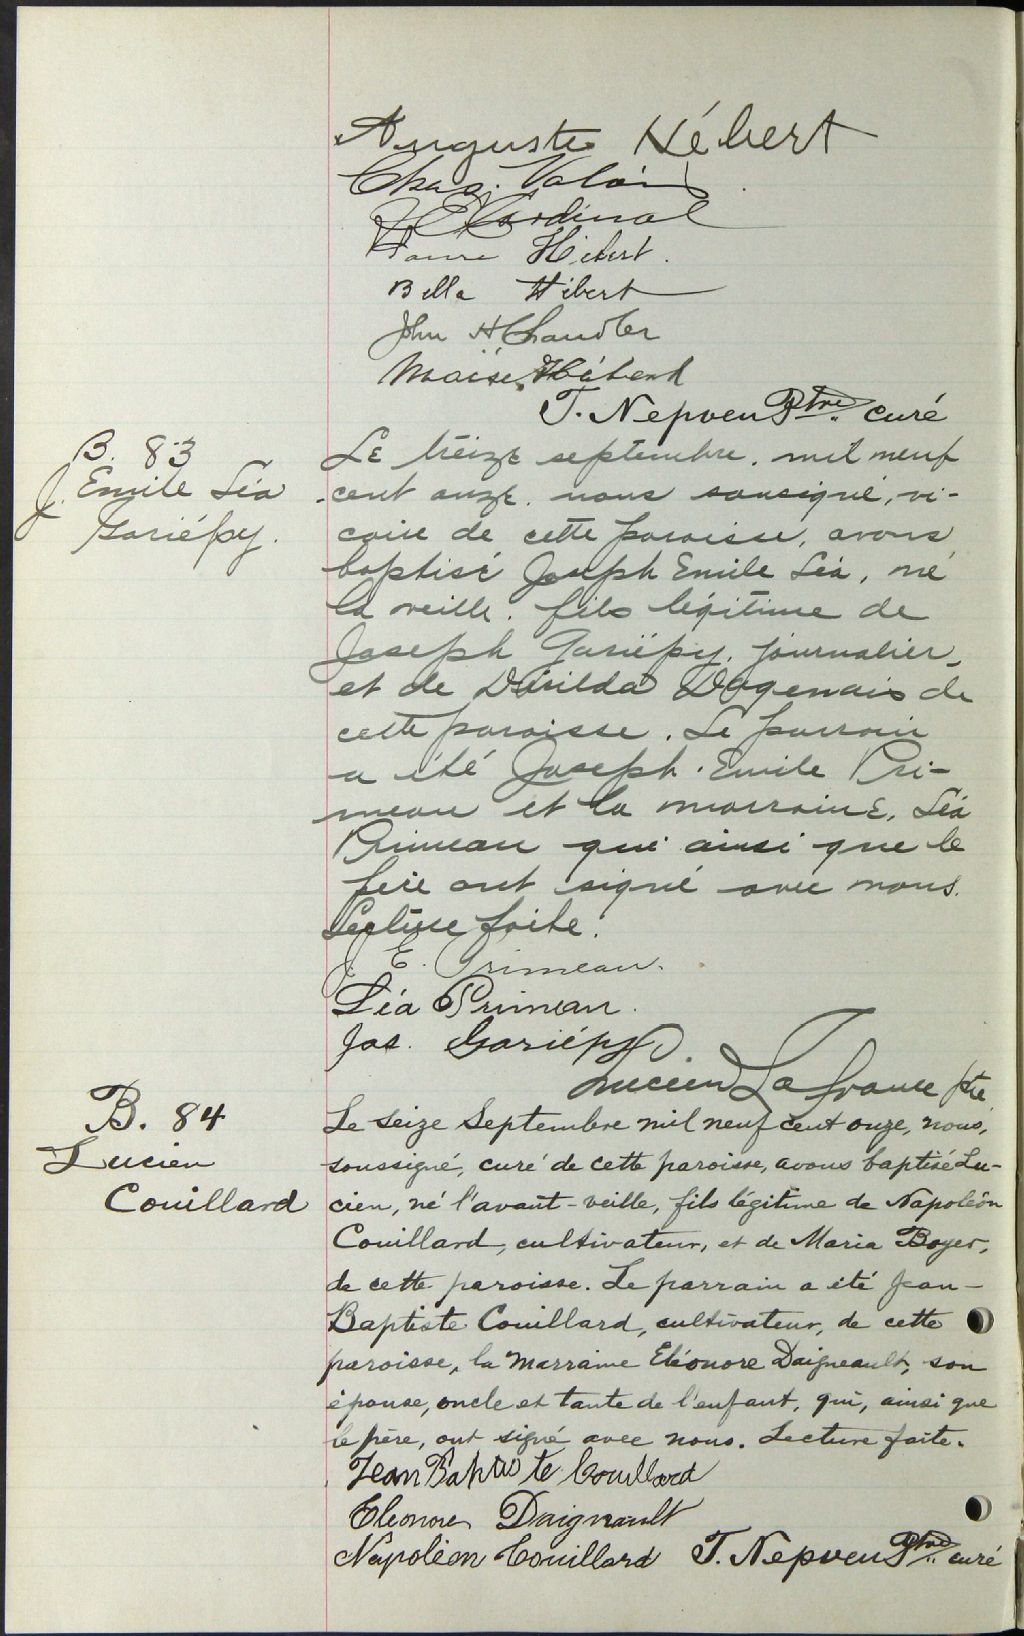 Auguste Hébert
Chas. Valois
J E Cardinal
Hébert.
Bella Hébert
John H Chandler
Moïse Hébert
T. Nepveu Ptre curé
B. 83
J. Emile Léa
Gariépy.
Le treize septembre, mil neuf
cent onze, nous sousigné, vi-
caire de cette paroisse, avons
baptisé Joseph Emile Léa, né
la veille, fils légitime de
Joseph Gariépy, journalier,
et de Dérilda Dagenais de
cette paroisse. Le parrain
a été Joseph. Emile Pri-
meau et la marraine, Léa
Primeau qui ainsi que le
père ont signé avec nous.
Lecture faite.
J. E. Primeau.
Léa Primeau.
Jos. Gariépy
Lucien Lafrance ptre
B. 84
Lucien
Couillard
Le seize Septembre mil neuf cent onze, nous,
soussigné, curé de cette paroisse, avons baptisé Lu-
cien, né l'avant-veille, fils légitime de Napoléon
Couillard, cultivateur, et de Maria Boyer,
de cette paroisse. Le parrain a été Jean-
Baptiste Couillard, cultivateur, de cette
paroisse, la marraine Eléonore Daigneault, son
épouse, oncle et tante de l'enfant, qui, ainsi que
le père, ont signé avec nous. Lecture faite.
Jean Baptiste Couillard
Eleonore Daignault
Napoléon Couillard T. Nepveu Ptre curé